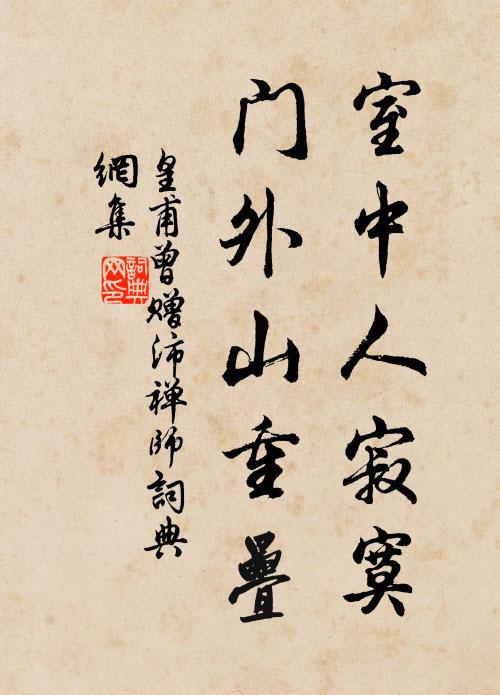 室中人寂寞
门外山重疊
皇甫曾赠沛禅师詞典
網集
詞典网印